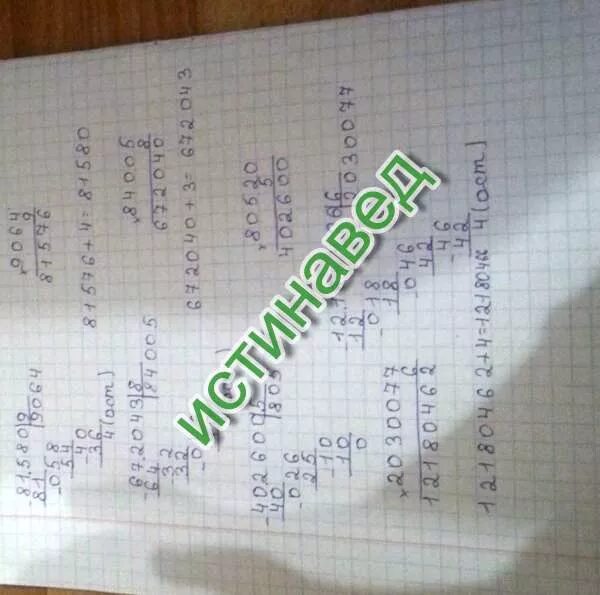 81580 | 9
81 | 9064
058
54
40
36
4 (ост)
× 9064
9
81576
81576 + 4 = 81580
672043 | 8
64 | 84005
32
32
× 84005
8
672040
672040 + 3 = 672043
402600 | 5
40 | 805
026
25
10
10
0
× 80520
5
402600
6
12 | 2030077
018
18
046
42
46
42
4 (ост)
× 2030077
6
12180462
12180462 + 4 = 12180466
истинавед